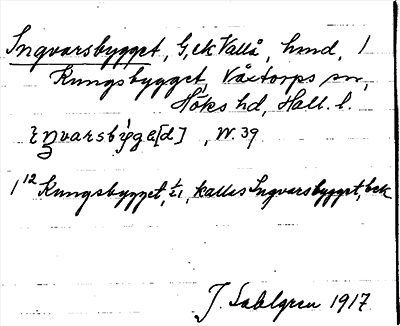 Ingvarsbygget, G, ek Vallå, hmd, 1
Kungsbygget, Våxtorps sn,
Höks hd, Hall. l.
ɪŋvarsby̍ge[d], W. 39
1 12 Kungsbygget, 1/21, kallas Ingvarsbygget, bek
J. Sahlgren 1917